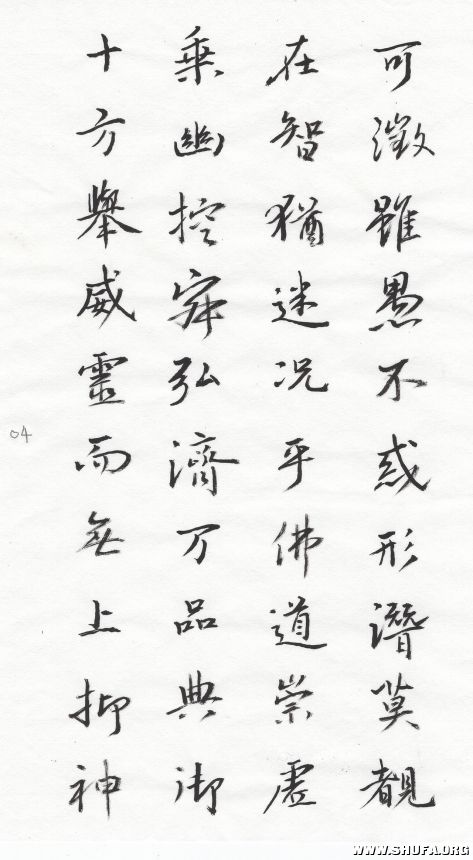 可澂雖愚不惑形潛莫覩
在智猶迷况乎佛道崇虛
乘幽控寂弘濟万品典御
十方舉威靈而無上抑神
04
WWW.SHUFA.ORG